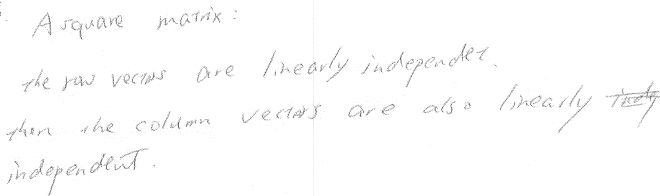 A square matrix:
the row vectors are linearly independet.
then the column vectors are also linearly
independent.